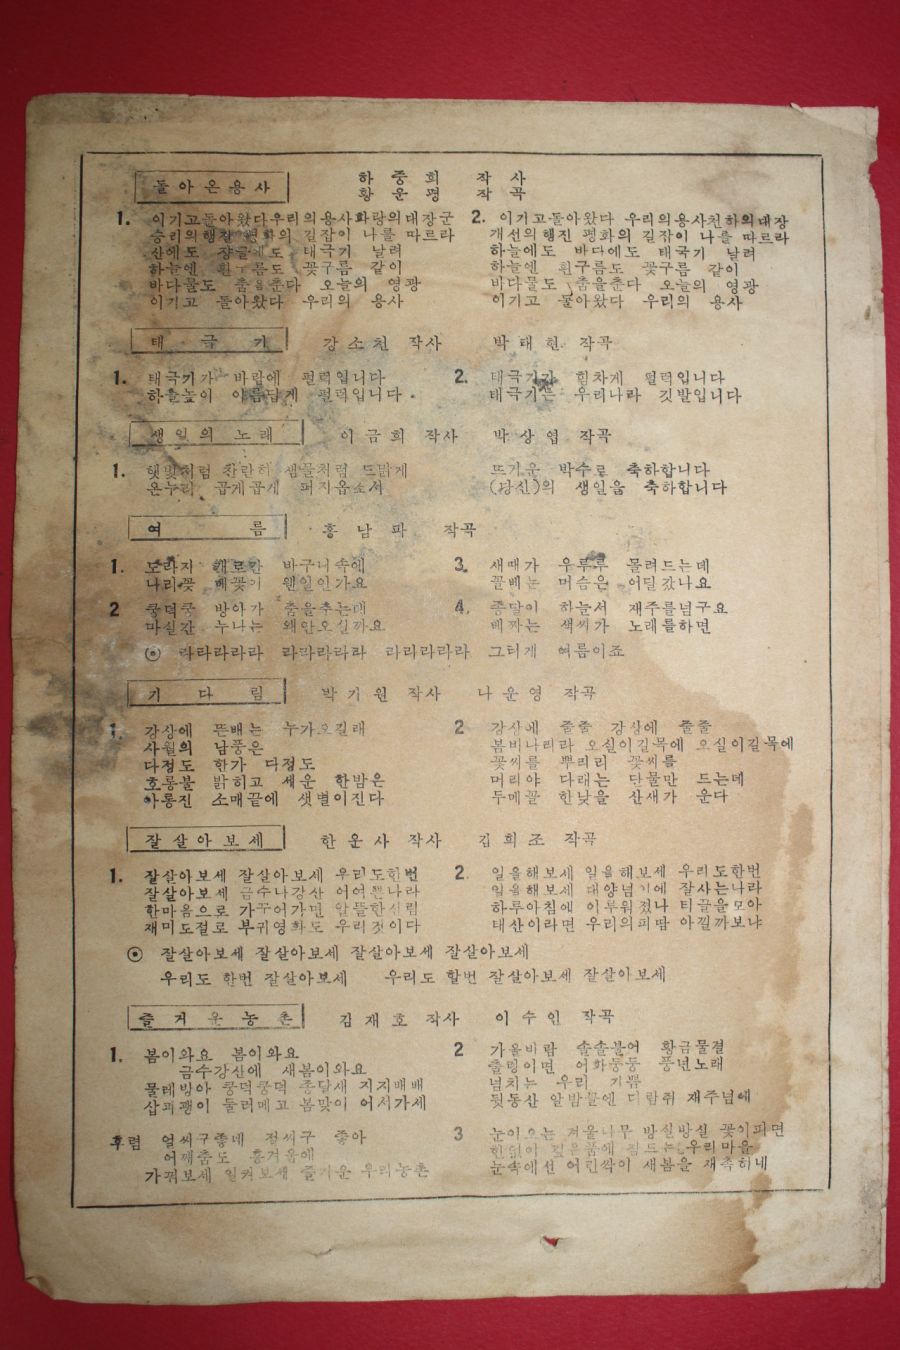 돌아온용사
하중희 작사
황운평 작곡
1. 이기고돌아왔다우리의용사화랑의대장군
승리의행진 평화의 길잡이 나를 따르라
산에도 장글에도 태극기 날려
하늘엔 흰구름도 꽃구름 같이
바다물도 춤을춘다 오늘의 영광
이기고 돌아왔다 우리의 용사
2. 이기고돌아왔다 우리의용사천하의대장
개선의행진 평화의 길잡이 나를 따르라
하늘에도 바다에도 태극기 날려
하늘엔 흰구름도 꽃구름 같이
바다물도 춤을춘다 오늘의 영광
이기고 돌아왔다 우리의 용사
태극기
강소천 작사 박태현 작곡
1. 태극기가 바람에 펄럭입니다
하늘높이 아름답게 펄럭입니다
2. 태극기가 힘차게 펄럭입니다
태극기는 우리나라 깃발입니다
생일의노래
이금희 작사 박상엽 작곡
1. 햇빛처럼 찬란히 샘물처럼 드맑게
온누리 곱게곱게 퍼지옵소서
뜨거운 박수로 축하합니다
(당신)의 생일을 축하합니다
여름
홍남파 작곡
1. 도라지 캐로간 바구니속에
나리꽃 메꽃이 웬일인가요
2 쿵덕쿵 방아가 춤을추는데
마실간 누나는 왜안오실까요
3. 새떼가 우루루 몰려드는데
꼴베는 머슴은 어딜갔나요
4. 종달이 하늘서 재주를넘구요
베짜는 색씨가 노래를하면
⊙ 라라라라라 라라라라라 라리라라라 그터게 여름이죠
기다림
박기원 작사 나운영 작곡
1. 강상에 뜬배는 누가오길래
사월의 남풍은
다정도 한가 다정도
호롱불 밝히고 세운 한밤은
아롱진 소매끝에 샛별이진다
2 강상에 줄줄 강상에 줄줄
봄비나리라 오실이길목에 오실이길목에
꽃씨를 뿌리리 꽃씨를
머리야 다래는 단물만 드는데
두메꼴 한낮을 산새가 운다
잘살아보세
한운사 작사 김희조 작곡
1. 잘살아보세 잘살아보세 우리도한번
잘살아보세 금수나강산 어여쁜나라
한마음으로 가꾸어가면 알뜰한살림
재미도절로 부귀영화도 우리것이다
2. 일을해보세 일을해보세 우리도한번
일을해보세 대양넘어에 잘사는나라
하루아침에 이루워졌나 티끌을모아
태산이라면 우리의피땀 아낄까보냐
⊙ 잘살아보세 잘살아보세 잘살아보세 잘살아보세
우리도 한번 잘살아보세 우리도 할번 잘살아보세 잘살아보세
즐거운농촌
김재호 작사 이수인 작곡
1. 봄이와요 봄이와요
금수강산에 새봄이와요
물레방아 쿵덕쿵덕 종달새 지지배배
삽괴괭이 둘러메고 봄맞이 어서가세
2 가을바람 솔솔불어 황금물결
출렁이면 어화둥둥 풍년노래
넘치는 우리 기쁨
뒷동산 알밤몰엔 다람쥐 재주넘에
후렴 얼씨구좋네 정씨구 좋아
어깨춤도 흥겨움에
가꿔보세 일켜보세 즐거운 우리농촌
3 눈이오는 겨울나무 방실방실 꽃이피면
한없이 깊은꿈에 잠드는우리마을
눈속에선 어린싹이 새봄을 재촉히네